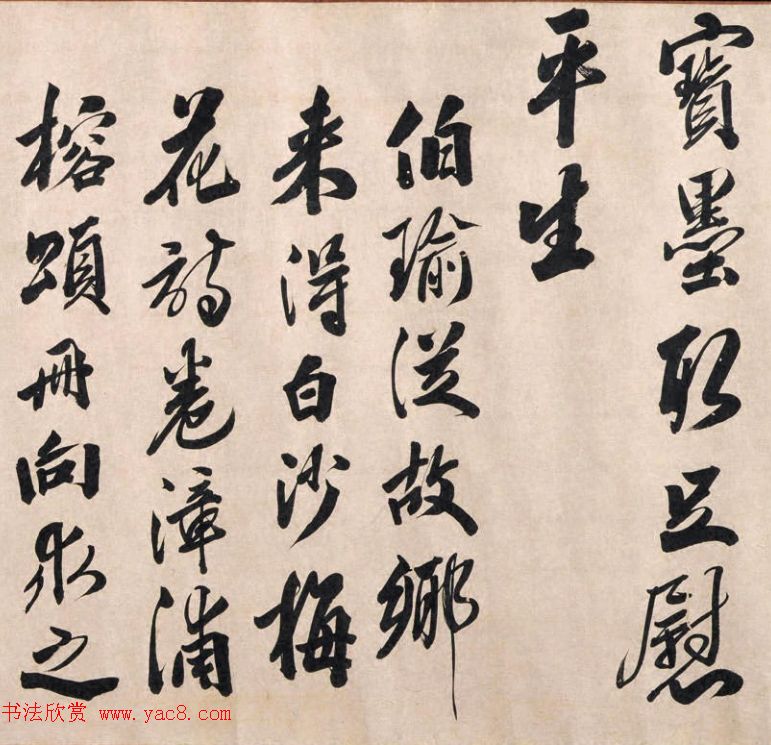 寶墨取足慰
平生
伯瑜從故鄉
来得白沙梅
花詩卷漳浦
榕頌冊向求之
书法欣赏 www.yac8.com